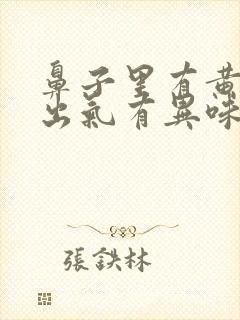 鼻子里有黄
出氣有異味
張鉄林